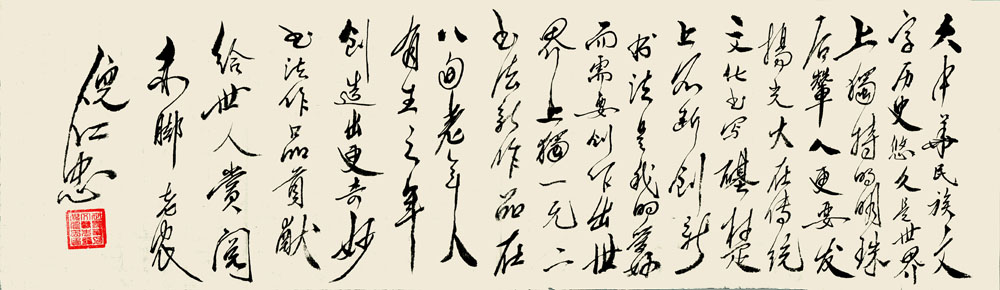 大中华民族文
字历史悠久是世界
上独特的明珠
后辈人更要发
扬光大在传统
文化书写础
上不断创新
书法是我的
而需要创作出世
界上獨一无二
书法新作品在
八旬老年人
有生之年
创造出更奇妙
书法作品贡献
给世人赏阅
赤脚老农
倪仁忠